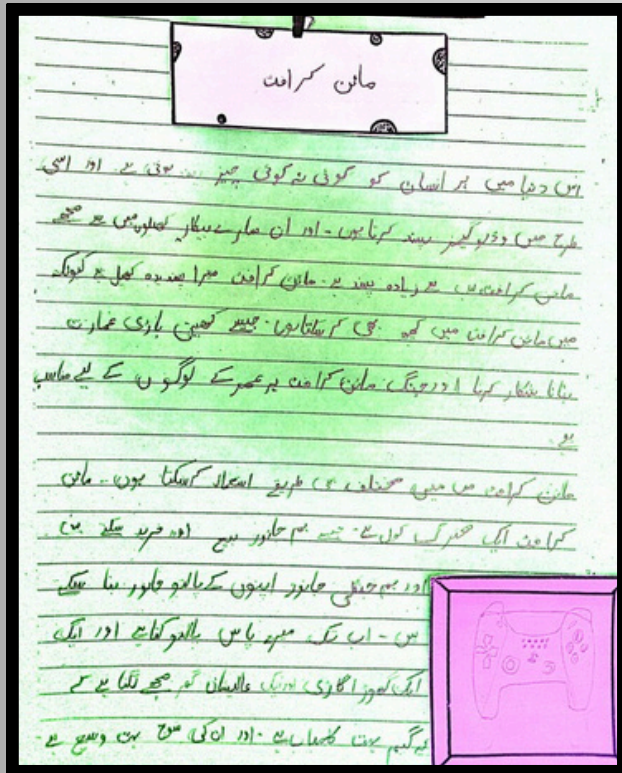 مائن کرافٹ
اس دنیا میں ہر انسان کو کوئی نہ کوئی چیز ہوتی ہے۔ اور اسی
طرح میں وڈیو گیمز پسند کرتا ہوں۔ اور ان سارے بیکار کھلونوں میں سے مجھے
مائن کرافٹ سب سے زیادہ پسند ہے۔ مائن کرافٹ میرا پسندیدہ کھیل ہے کیونکہ
میں مائن کرافٹ میں کچھ بھی کرسکتا ہوں۔ جیسے کھیتی باڑی عمارت
بنانا شکار کرنا اور جنگ۔ مائن کرافٹ ہر عمر کے لوگوں کے لیے مناسب
ہے۔
مائن کرافٹ میں میں مختلف طریقے کرسکتا ہوں۔ مائن
کرافٹ ایک ہے۔ ہم جانور بیچ اور خرید سکتے ہیں
اور ہم جنگلی جانور اپنوں کے پالتو جانور بنا سکتے
ہیں۔ اب تک میرے پاس پالتو کتا ہے اور ایک
ایک گھوڑا گاڑی عالیشان گھر مجھے لگتا ہے کہ
یہ گیم بہت کامیاب ہے۔ اور ان کی سوچ بہت وسیع ہے۔